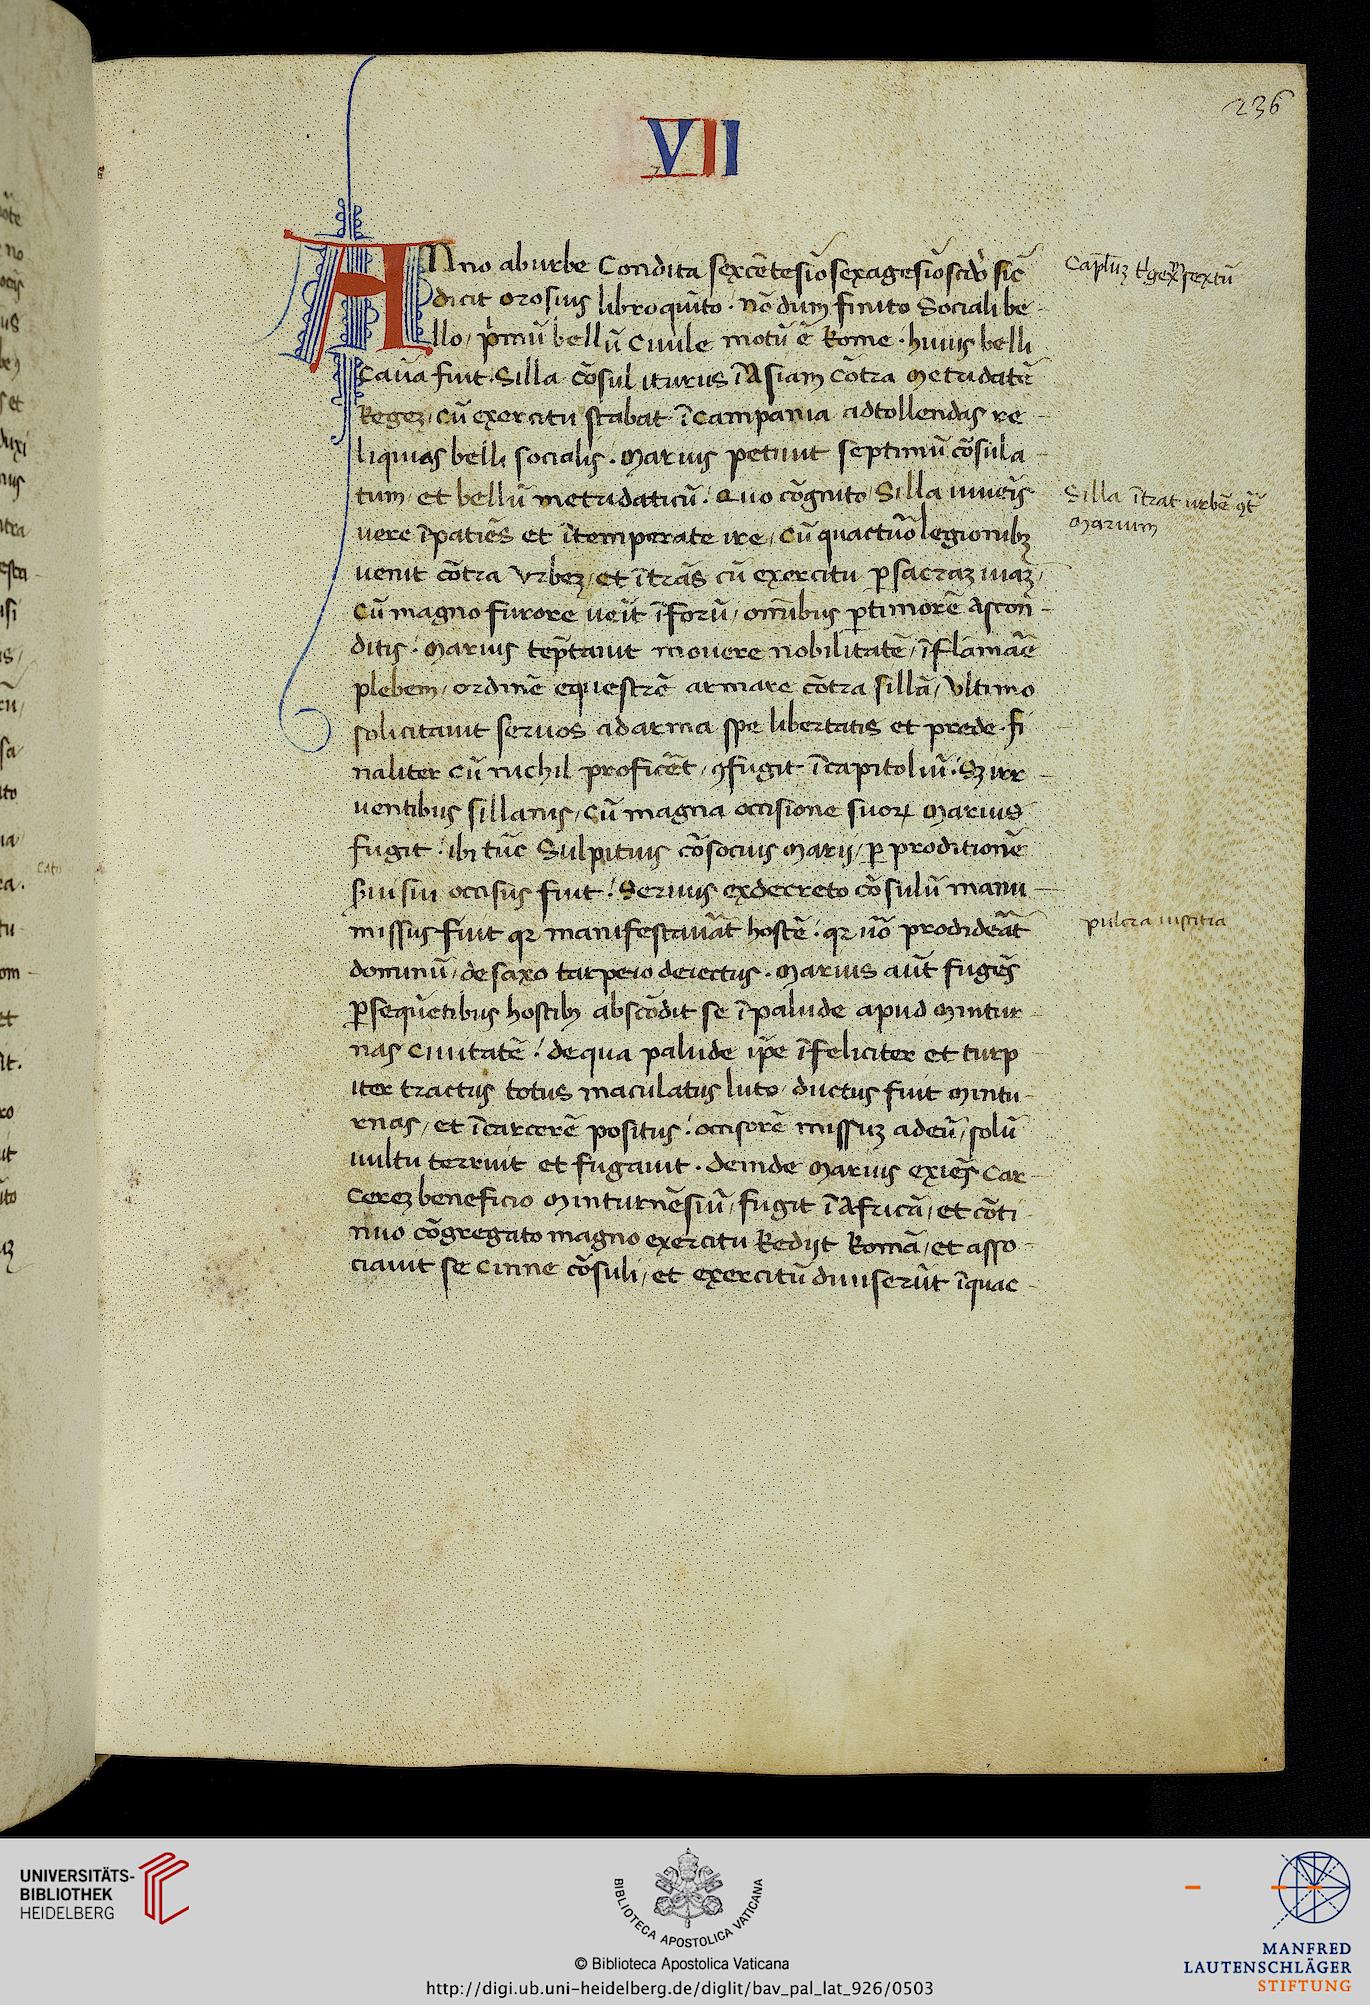 236
VII
ANno ab urbe Condita sexcẽtesiõ sexagesiõ scđo sic̃
dicit orosius libro quĩto · nõ dum finito Sociali be
llo / pͥmũ bellũ ciuile motũ ẽ Rome · huius belli
Cauͣa fuit · Silla cõsul iturus ĩ Asiam cõtra metridatẽ
Regeʒ / cũ exercitu stabat ĩ campania ad tollendas re
liquias belli socialis · marius petiuit septimũ cõsula
tum / et bellũ metridaticũ · Quo cõgnito / Silla iuuẽis
uere ĩpatiẽs et ĩtemperate ire / cũ quactuõ legionibʒ
uenit cõtra Vrbeʒ / et ĩtrãs cũ exercitu ꝑ sacraʒ uiaʒ /
cũ magno furore ueĩt ĩ forũ / omĩbus ꝑ timorẽ ascon
ditis · marius tep̃tauit mouere nobilitatẽ / ĩflamãe
plebem / ordinẽ equestrẽ armare cõtra sillã / Vltimo
solicitauit seruos ad arma spe libertatis et prede · fi
naliter cũ nichil proficẽt / ꝯfugit ĩ capitoliũ · Sʒ irr
uentibus sillanis / cũ magna occisione suoꝝ marius
fugit · ibi tũc Sulpitius cõsocius marij / ꝑ proditionẽ
s̃ui sui occisus fuit · Seruus ex decreto cõsulũ manu
missus fuit qꝛ manifestauãt hostẽ · qꝛ ũo prodideãt
dominũ / de saxo tarpeio deiectus · marius aũt fugẽs
ꝑsequẽtibus hostibʒ abscõdit se ĩ palude apud mintur
nas ciuitatẽ · de qua palude ip̃e ĩfeliciter et turp
iter tractus totus maculatus luto ductus fuit mintu
rnas / et ĩ carcerẽ positus · occisorẽ missuʒ ad eũ / solũ
uultu terruit et fugauit · deinde marius exiẽs Car
Cereʒ beneficio minturnẽsiũ / fugit ĩ Africã / et cõti
nuo cõgregato magno exercitu Redijt Romã / et asso
ciauit se cinne cõsuli / et exercitũ diuiserũt ĩ quac
Silla ĩtrat urbẽ ꝯt̃
marium
pulcra iustitia
Cato
UNIVERSITÄTS-
BIBLIOTHEK
HEIDELBERG
BIBLIOTECA APOSTOLICA VATICANA
© Biblioteca Apostolica Vaticana
http://digi.ub.uni-heidelberg.de/diglit/bav_pal_lat_926/0503
MANFRED
LAUTENSCHLÄGER
STIFTUNG